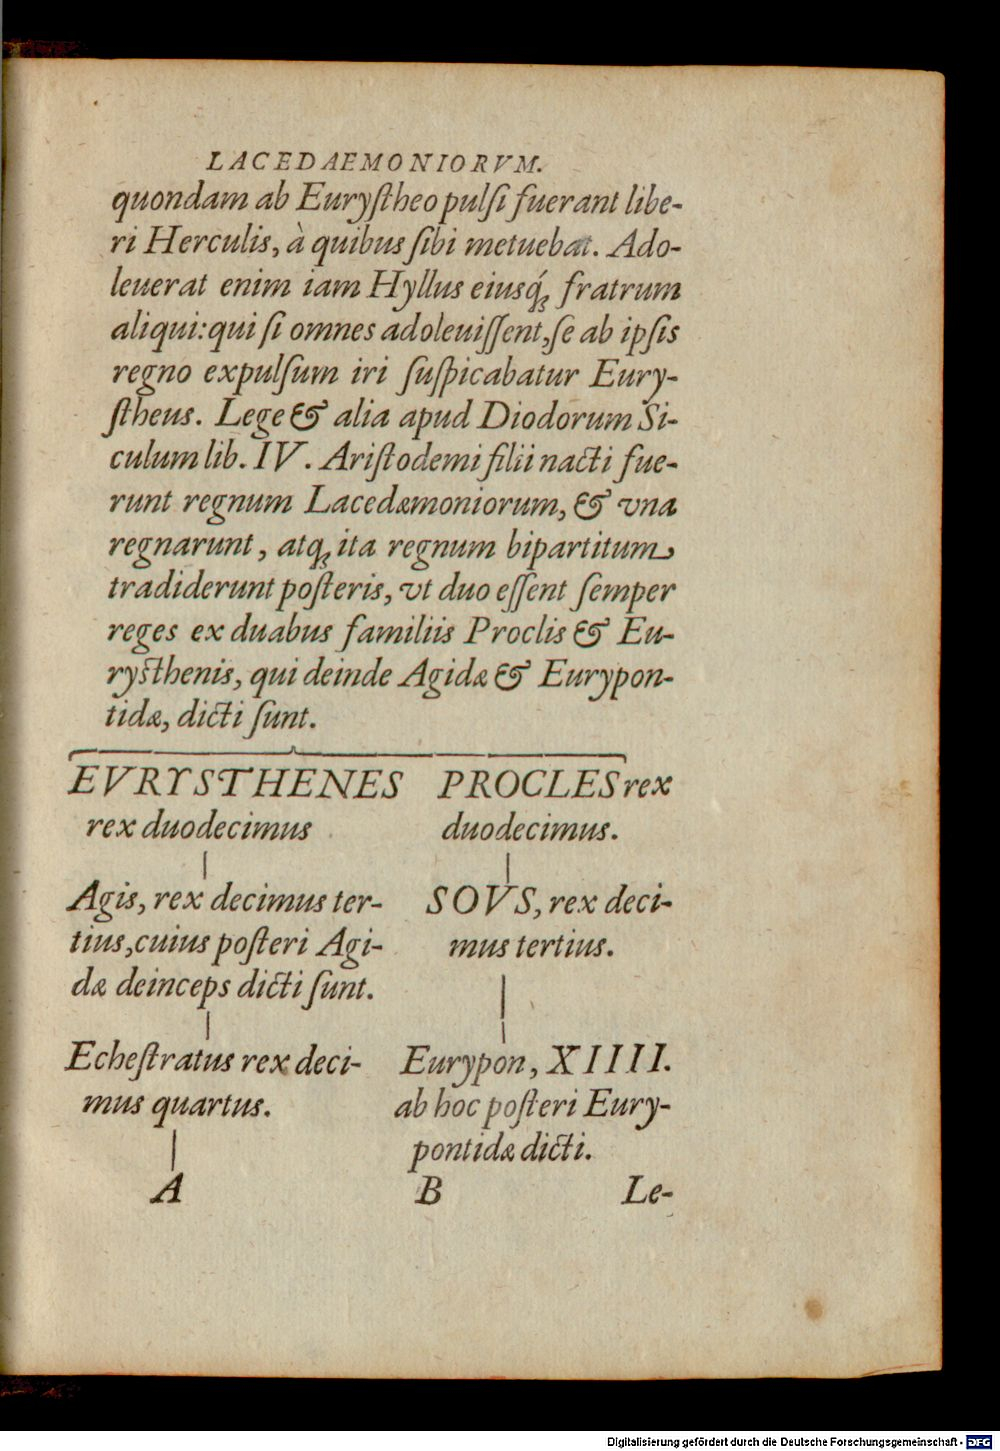 LACEDAEMONIORVM.
quondam ab Euryſtheo pulſi fuerant libe-
ri Herculis, à quibus ſibi metuebat. Ado-
leuerat enim iam Hyllus eiusq́ꝫ fratrum
aliqui: qui ſi omnes adoleuiſſent, ſe ab ipſis
regno expulſum iri ſuſpicabatur Eury-
ſtheus. Lege & alia apud Diodorum Si-
culum lib. IV. Ariſtodemi filii nacti fue-
runt regnum Lacedæmoniorum, & vna
regnarunt, atqꝫ ita regnum bipartitum
tradiderunt poſteris, vt duo eſſent ſemper
reges ex duabus familiis Proclis & Eu-
ryſthenis, qui deinde Agidæ & Eurypon-
tidæ, dicti ſunt.
EVRYSTHENES
rex duodecimus
Agis, rex decimus ter-
tius, cuius poſteri Agi-
dæ deinceps dicti ſunt.
Echeſtratus rex deci-
mus quartus.
A
PROCLES rex
duodecimus.
SOVS, rex deci-
mus tertius.
Eurypon, XIIII.
ab hoc poſteri Eury-
pontidæ dicti.
B
Le-
Digitalisierung gefördert durch die Deutsche Forschungsgemeinschaft - DFG